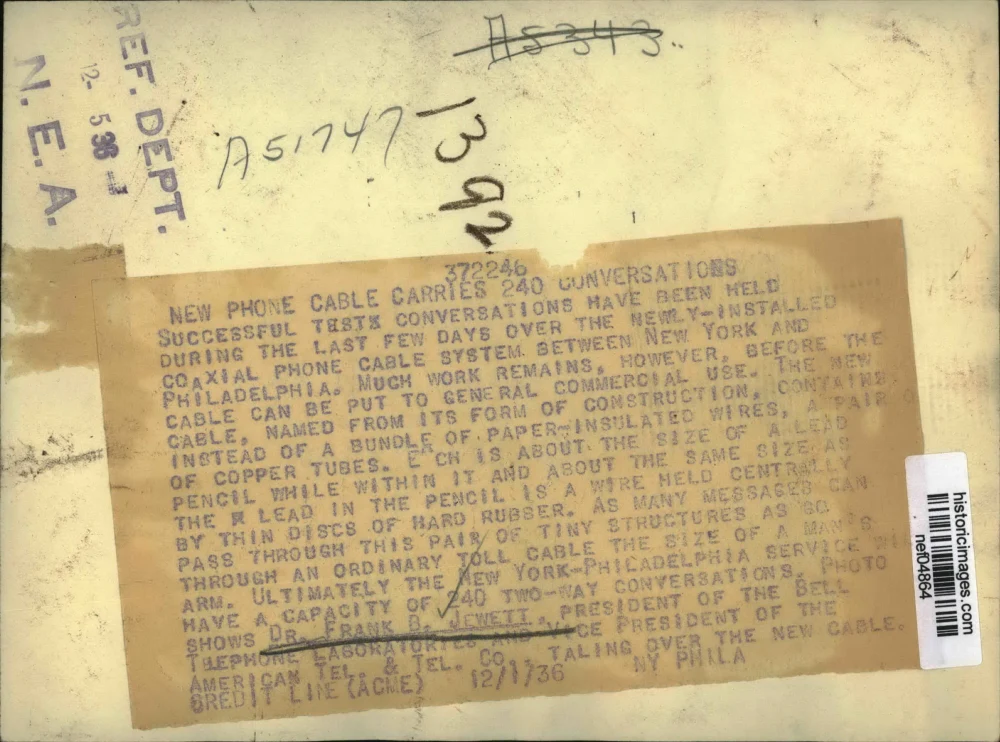 A5343
REF. DEPT.
12- 5 36 -1
N. E. A.
A51747
1392
372246
NEW PHONE CABLE CARRIES 240 CONVERSATIONS
SUCCESSFUL TESTS CONVERSATIONS HAVE BEEN HELD
DURING THE LAST FEW DAYS OVER THE NEWLY-INSTALLED
COAXIAL PHONE CABLE SYSTEM BETWEEN NEW YORK AND
PHILADELPHIA. MUCH WORK REMAINS, HOWEVER, BEFORE THE
CABLE CAN BE PUT TO GENERAL COMMERCIAL USE. THE NEW
CABLE, NAMED FROM ITS FORM OF CONSTRUCTION, CONTAINS
INSTEAD OF A BUNDLE OF PAPER-INSULATED WIRES, A PAIR O
OF COPPER TUBES. E CH IS ABOUT THE SIZE OF A LEAD
PENCIL WHILE WITHIN IT AND ABOUT THE SAME SIZE AS
THE LEAD IN THE PENCIL IS A WIRE HELD CENTRALLY
BY THIN DISCS OF HARD RUBBER. AS MANY MESSAGES CAN
PASS THROUGH THIS PAIR OF TINY STRUCTURES AS GO
THROUGH AN ORDINARY TOLL CABLE THE SIZE OF A MAN'S
ARM. ULTIMATELY THE NEW YORK-PHILADELPHIA SERVICE
HAVE A CAPACITY OF 240 TWO-WAY CONVERSATIONS. PHOTO
SHOWS DR. FRANK B. JEWETT, PRESIDENT OF THE BELL
TELEPHONE LABORATORIES AND VICE PRESIDENT OF THE
AMERICAN TEL. & TEL. CO., TALING OVER THE NEW CABLE.
CREDIT LINE (ACME) 12/1/36 NY PHILA
historicimages.com
nef04864